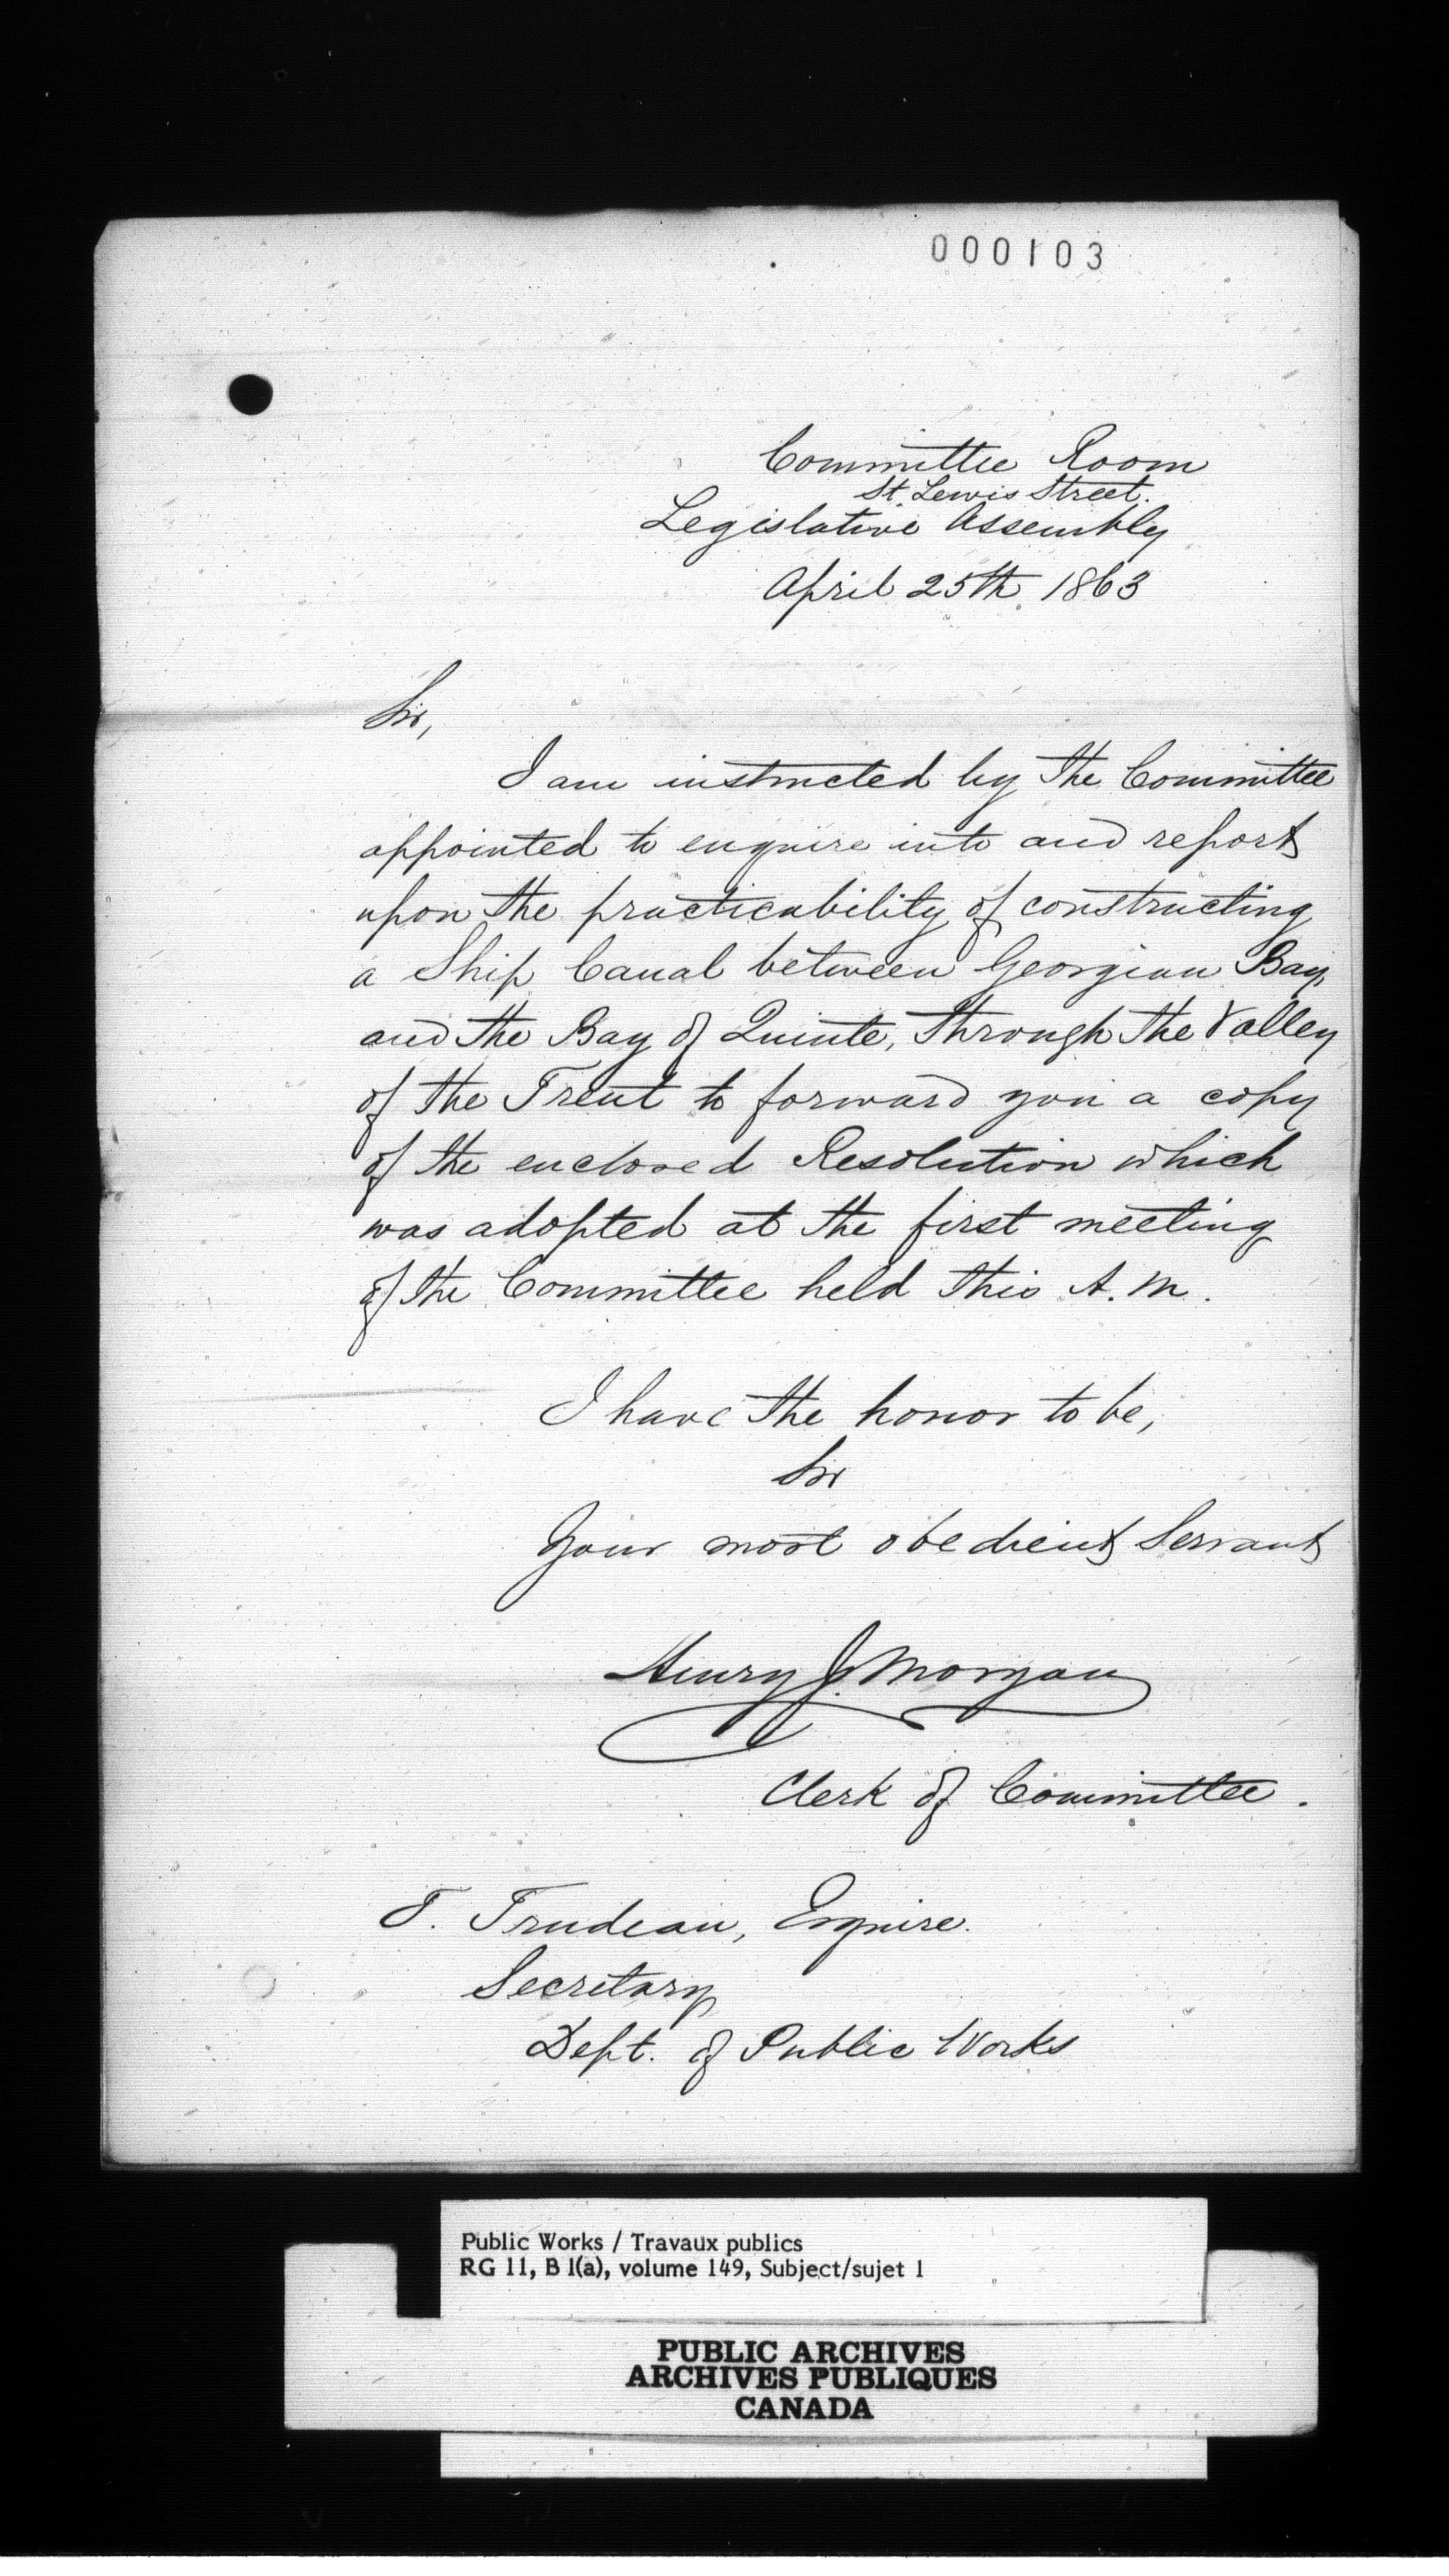 000103
Committee Room
St. Lewis Street.
Legislative Assembly
April 25th 1863
Sir,
I am instructed by the Committee
appointed to enquire into and report
upon the practicability of constructing
a Ship Canal between Georgian Bay,
and the Bay of Quinte, through the Valley
of the Trent to forward you a copy
of the enclosed Resolution which
was adopted at the first meeting
of the Committee held this A.M.
I have the honor to be,
Sir
Your most obedient Servant
Henry J. Morgan
Clerk of Committee.
T. Trudeau, Esquire.
Secretary
Dept. of Public Works
Public Works / Travaux publics
RG 11, B 1(a), volume 149, Subject/sujet 1
PUBLIC ARCHIVES
ARCHIVES PUBLIQUES
CANADA